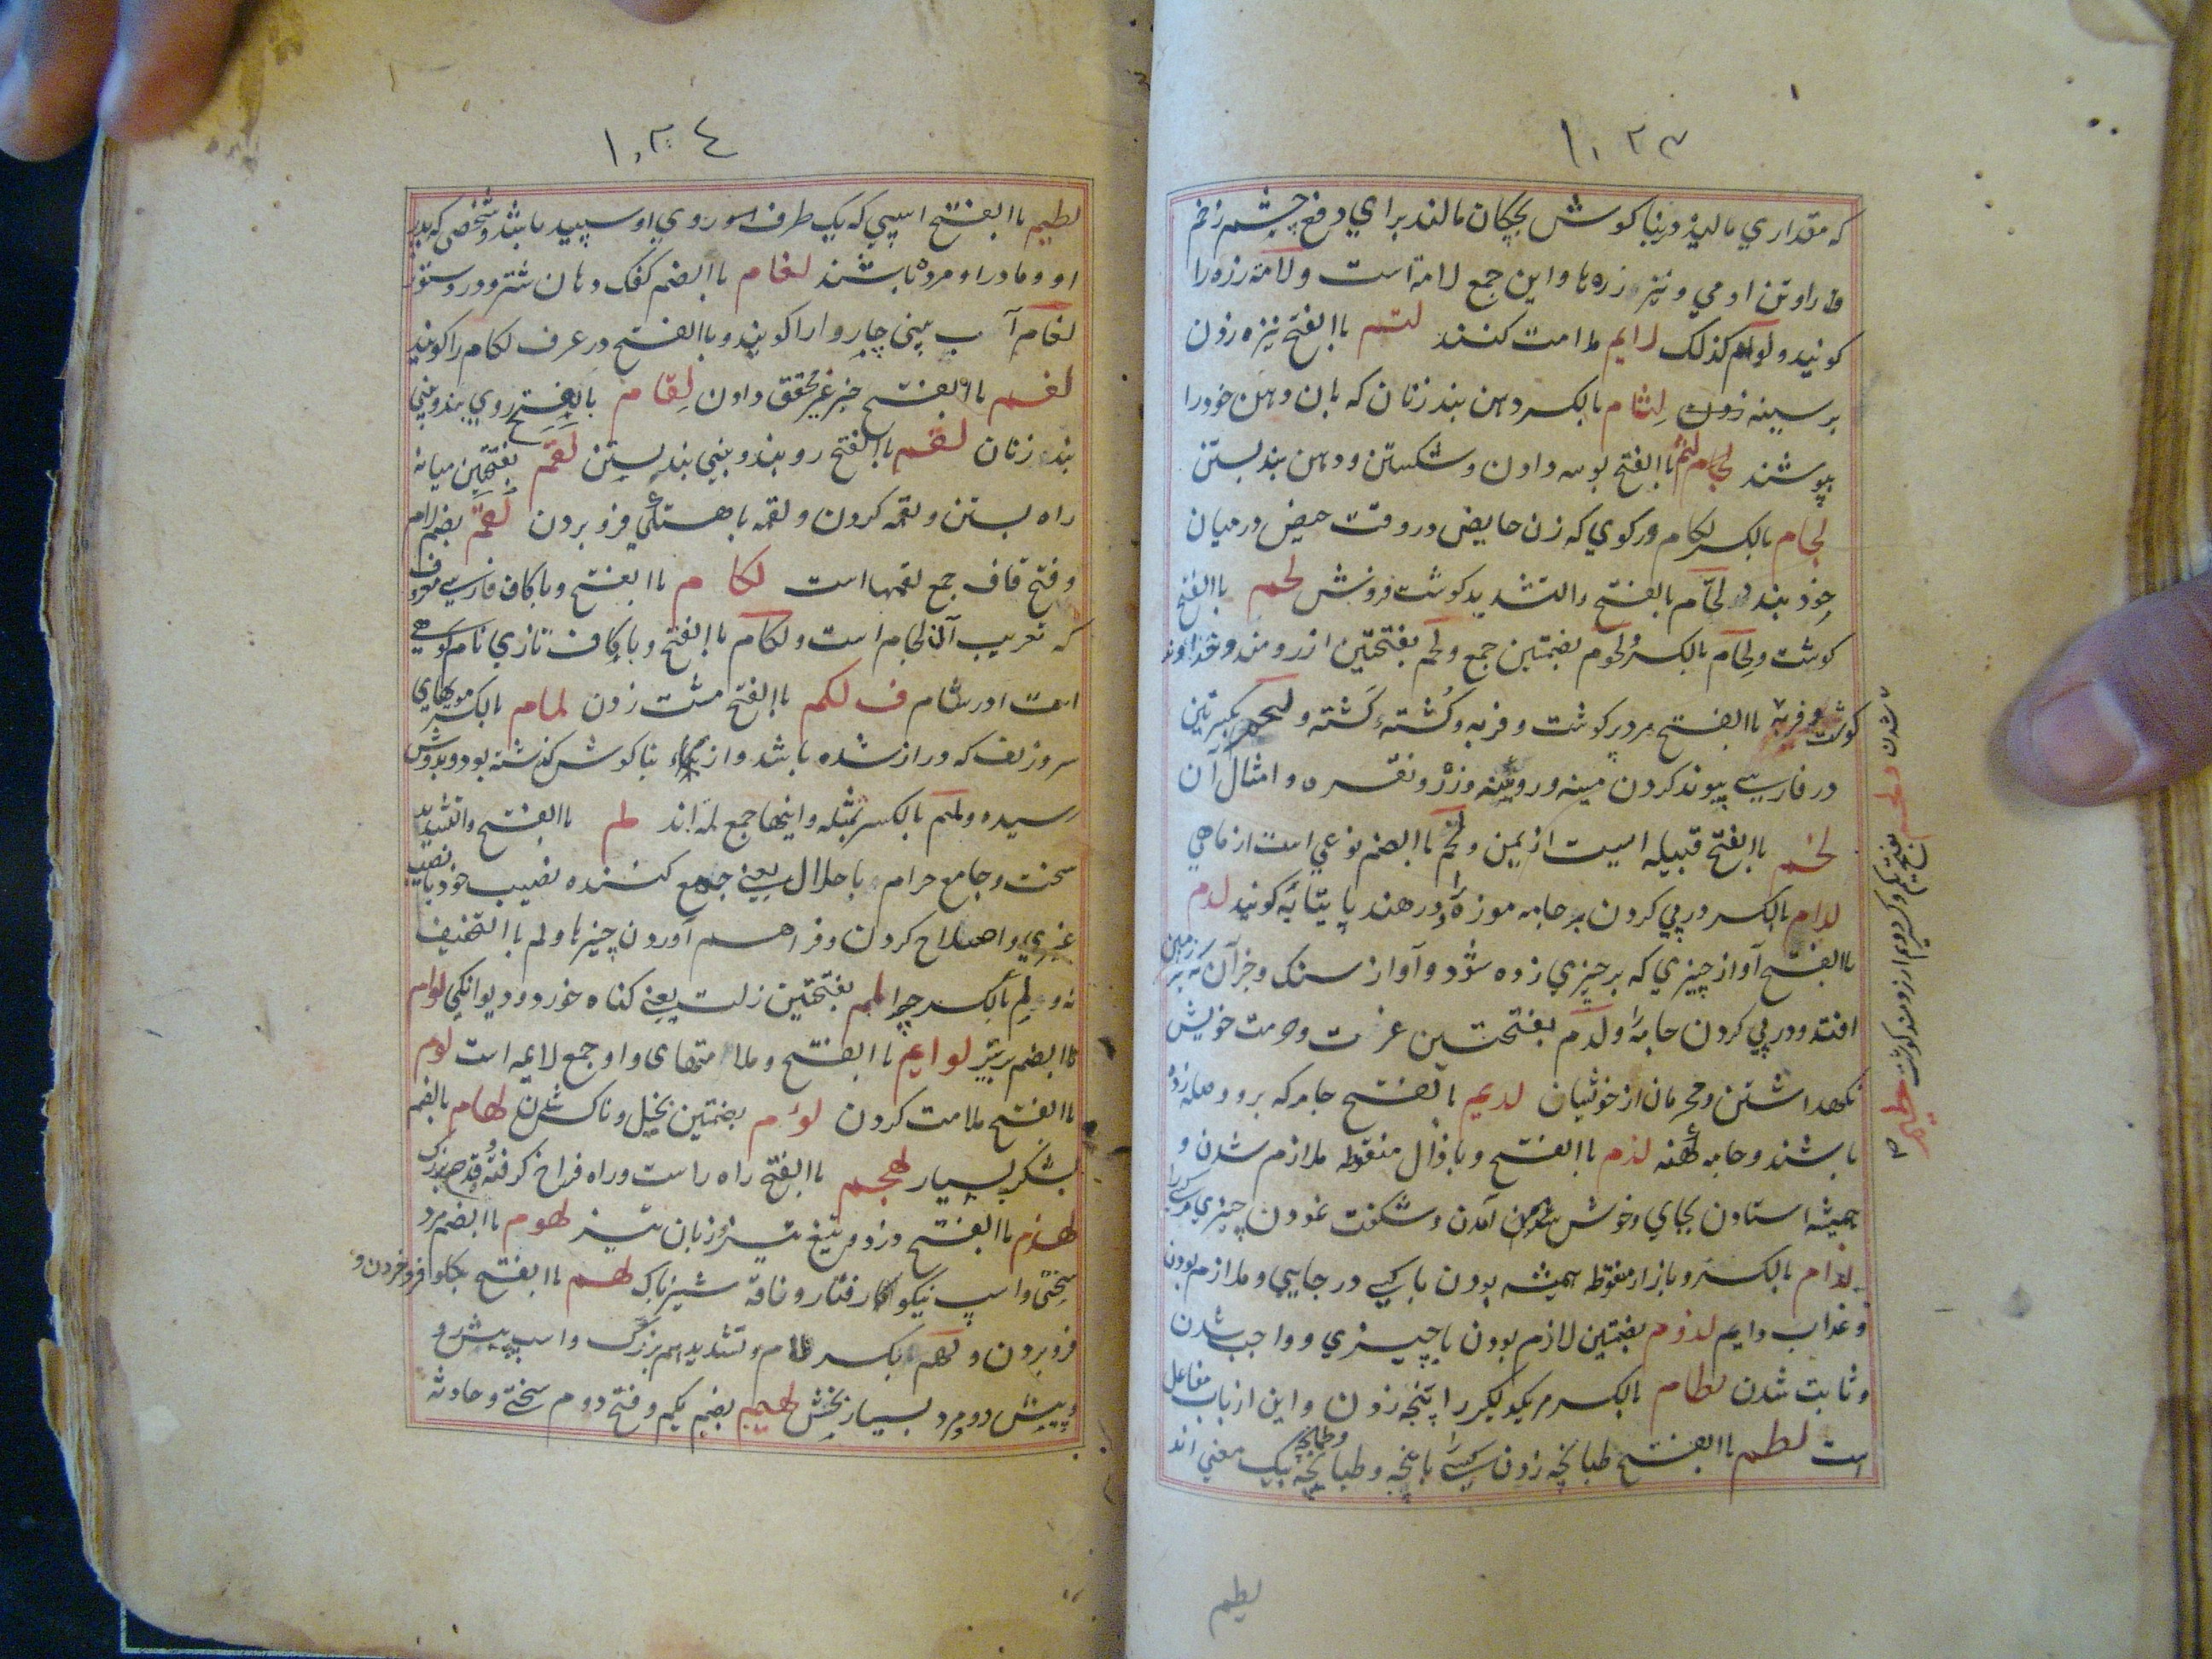 ١٠٢٣
که مقداري مالیده در بناکوش بچکان مالند براي دفع چشم زخم
و زره را و تن ادمي و نیز زره‌ها و این جمع لامة است ولامه زره را
کویند و لوام کذلک لایم ملامت کنند لتم باالفتح نیزه زدن
بر سینه زدن لِثام بالکسر دهن بند زنان که بان دهن خود را
بپوشند لثم باالفتح بوسه دادن و شکستن و دهن بند بستن
لجام بالکسر لکام ورکوي که زن حایض در وقت حیض درمیان
خود بندد لحّام بالفتح والتشدید کوشت فروش لحم باالفتح
کوشت ولِحام بالکسر ولحوم بضمتین جمع ولحم بفتحتین ارزومند و خداوند
کوشت و فربه باالفتح مرد پرکوشت و فربه و کُشته کَشته و لحم بکسرتین
در فارسي پیوند کردن مینه و رویینه و زر و نقره و امثال آن
لخم باالفتح قبیله ایست از یمن و لخم باالضم نوعي است از ماهي
لدام بالکسر درپي کردن بر جامه موزه را و در هند پایتابه کویند لدم
باالفتح آواز چیزي که بر چیزي زده شود و آواز سنک و جز آن که بر زمین
افتد و درپي کردن جامه را ولدم بفتحتین عزت و حرمت خویش
نکهداشتن و محرمان از خوشیان لدیم باالفتح جامه که برو وصله زده
باشند و جامه کهنه لذم باالفتح و با ذال منقوطه ملازم شدن و
همیشه استادن بجاي و خوش آمدن و شکفت نمودن چیزي مر کسي را
لزام بالکسر و بازار منقوط همیشه بودن با کسي در جایي و ملازم بودن
و عذاب دایم لزوم بضمتین لازم بودن با چیزي و واجب شدن
و ثابت شدن لطام بالکسر مر یکدیکر را پنجه زدن و این از باب مفاعل
است لطم باالفتح طبانچه زدن کسي را با پنجه و طبانچه و طمانچه بیک معني اند
لطیم
١٠٢٤
لطیم باالفتح اسپي که یک طرف از روي او سپید باشد و شخصي که پدر
او و مادر او مرده باشند لغام باالضم کفک دهان شتر و در دستور
لغام آب بیني چارو ارا کویند و باالفتح در عرف لکام را کویند
لغم باالفتح خبر غیر محقق دادن لِقام باالفتح روي بند و بیني
بند زنان لقم باالفتح روبند و بیني بند بستن لقم بفتحتین میانه
راه بستن و لقمه کردن و لقمه باهستکي فرو بردن لُقَم بضم لام
و فتح قاف جمع لقمها است لکام باالفتح و با کاف فارسي معروف
که تعریب آن لجام است ولکام باالفتح و با کاف تازي نام کوهي
است در شام ف لکم باالفتح مشت زدن لمام بالکسر مویهاي
سر و زلف که دراز شده باشد و از بناکوش کذشته بود و بدوش
رسیده ولمم بالکسر بمثله و اینها جمع لمه اند لم باالفتح والتشدید
سخت و جامع حرام با حلال یعني جمع کننده نصیب خود با نصیب
غیري و اصلاح کردن و فراهم آوردن چیزها ولم باالتخفیف
نه ولِم بالکسر چرا لمم بفتحتین زلت یعني کناه خورد و دیوانکي لوام
باالضم برتیر لوایم باالفتح و ملامتهاي و او جمع لایمه است لوم
باالفتح ملامت کردن لؤم بضمتین بخیل و ناکس شدن لهام بالضم
لشکر بسیار لهجم باالفتح راه راست و راه فراخ کرفته و قدح بزرک
لهذم باالفتح دزد و تیغ تیز و زبان تیز لهوم باالضم مرد
سخي و اسپ نیکو رفتار و ناقه شیرناک لهم باالفتح بکلو فرو خوردن و
فرو بردن ولهم بکسر لام و تشدید میم بزرک و اسپ پیش رو
و پیش دو و مرد بسیار بخش لهیم بضم یکم و فتح دوم سختي و حادثه